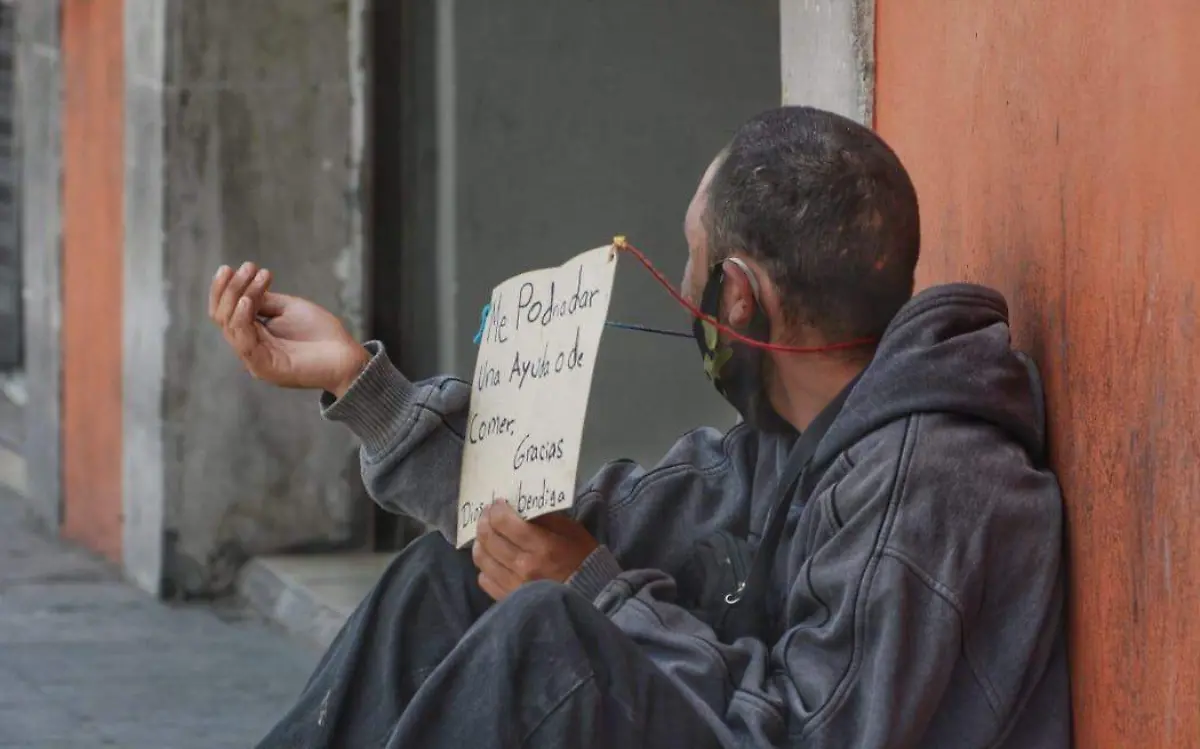 Me Podria dar
Una Ayuda o de
Comer.
Gracias
Dios bendiga